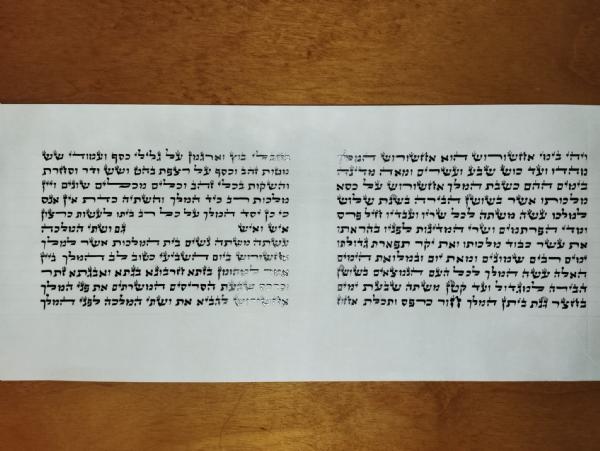 ויהי בימי אחשורוש הוא אחשורוש המלך
מהדו ועד כוש שבע ועשרים ומאה מדינה
בימים ההם כשבת המלך אחשורוש על כסא
מלכותו אשר בשושן הבירה בשנת שלוש
למלכו עשה משתה לכל שריו ועבדיו חיל פרס
ומדי הפרתמים ושרי המדינות לפניו בהראתו
את עשר כבוד מלכותו ואת יקר תפארת גדולתו
ימים רבים שמונים ומאת יום ובמלואת הימים
האלה עשה המלך לכל העם הנמצאים בשושן
הבירה למגדול ועד קטן משתה שבעת ימים
בחצר גנת ביתן המלך חור כרפס ותכלת אחוז
בחבלי בוץ וארגמן על גלילי כסף ועמודי שש
מטות זהב וכסף על רצפת בהט ושש ודר וסחרת
והשקות בכלי זהב וכלים מכלים שונים ויין
מלכות רב כיד המלך והשתיה כדת אין אנס
כי כן יסד המלך על כל רב ביתו לעשות כרצון
איש ואיש גם ושתי המלכה
עשתה משתה נשים בית המלכות אשר למלך
אחשורוש ביום השביעי כטוב לב המלך ביין
אמר למהומן בזתא חרבונא בגתא ואבגתא זתר
וכרכס שבעת הסריסים המשרתים את פני המלך
אחשורוש להביא את ושתי המלכה לפני המלך